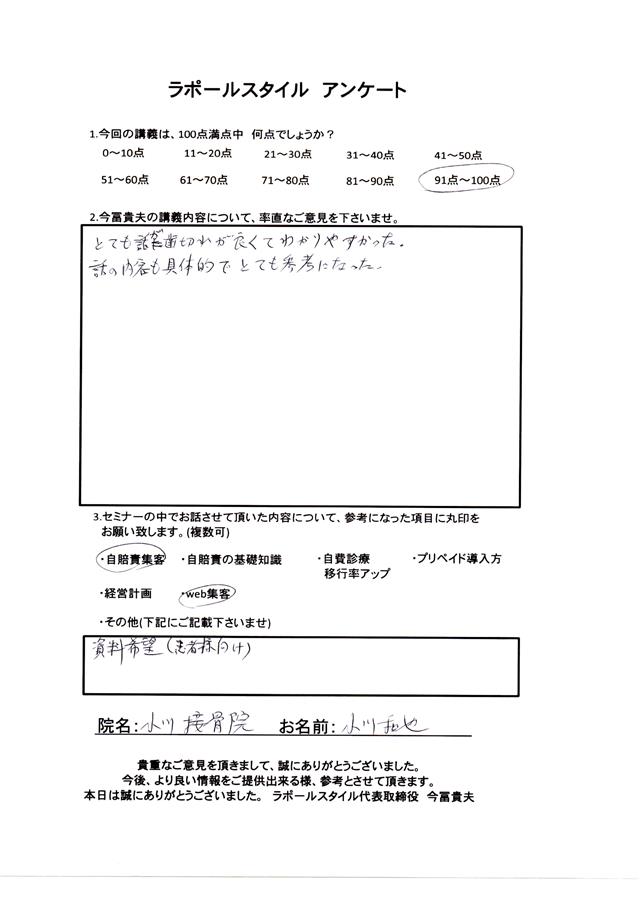 ラポールスタイル アンケート
1.今回の講義は、100点満点中 何点でしょうか？
0～10点 11～20点 21～30点 31～40点 41～50点
51～60点 61～70点 71～80点 81～90点 91点～100点
2.今冨貴夫の講義内容について、率直なご意見を下さいませ。
とても話が歯切れが良くてわかりやすかった。
話の内容も具体的でとても参考になった。
3.セミナーの中でお話させて頂いた内容について、参考になった項目に丸印を
お願い致します。(複数可)
・自賠責集客 ・自賠責の基礎知識 ・自費診療 ・プリペイド導入方
移行率アップ
・経営計画 ・web集客
・その他(下記にご記載下さいませ)
資料希望(患者様向け)
院名：小川接骨院 お名前：小川拓也
貴重なご意見を頂きまして、誠にありがとうございました。
今後、より良い情報をご提供出来る様、参考とさせて頂きます。
本日は誠にありがとうございました。 ラポールスタイル代表取締役 今冨貴夫